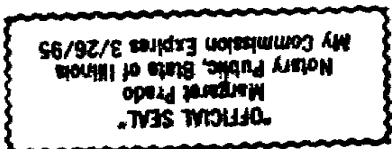 "OFFICIAL SEAL"
Margaret Prado
Notary Public, State of Illinois
My Commission Expires 3/26/95